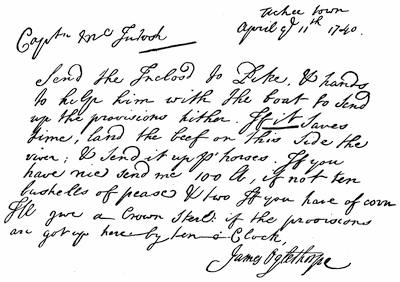 Uchee town
April ye 11th 1740.
Captn McIntosh
Send the Inclosd to Pike, & hands
to help him with the boat to send
up the provisions hither. If it saves
time, land the beef on this side the
river; & send it up pr horses. If you
have rice send me 100 lt, if not ten
bushells of pease & two If you have of corn
I'll give a Crown Sterl: if the provisions
are got up here by ten o Clock,
James Oglethorpe